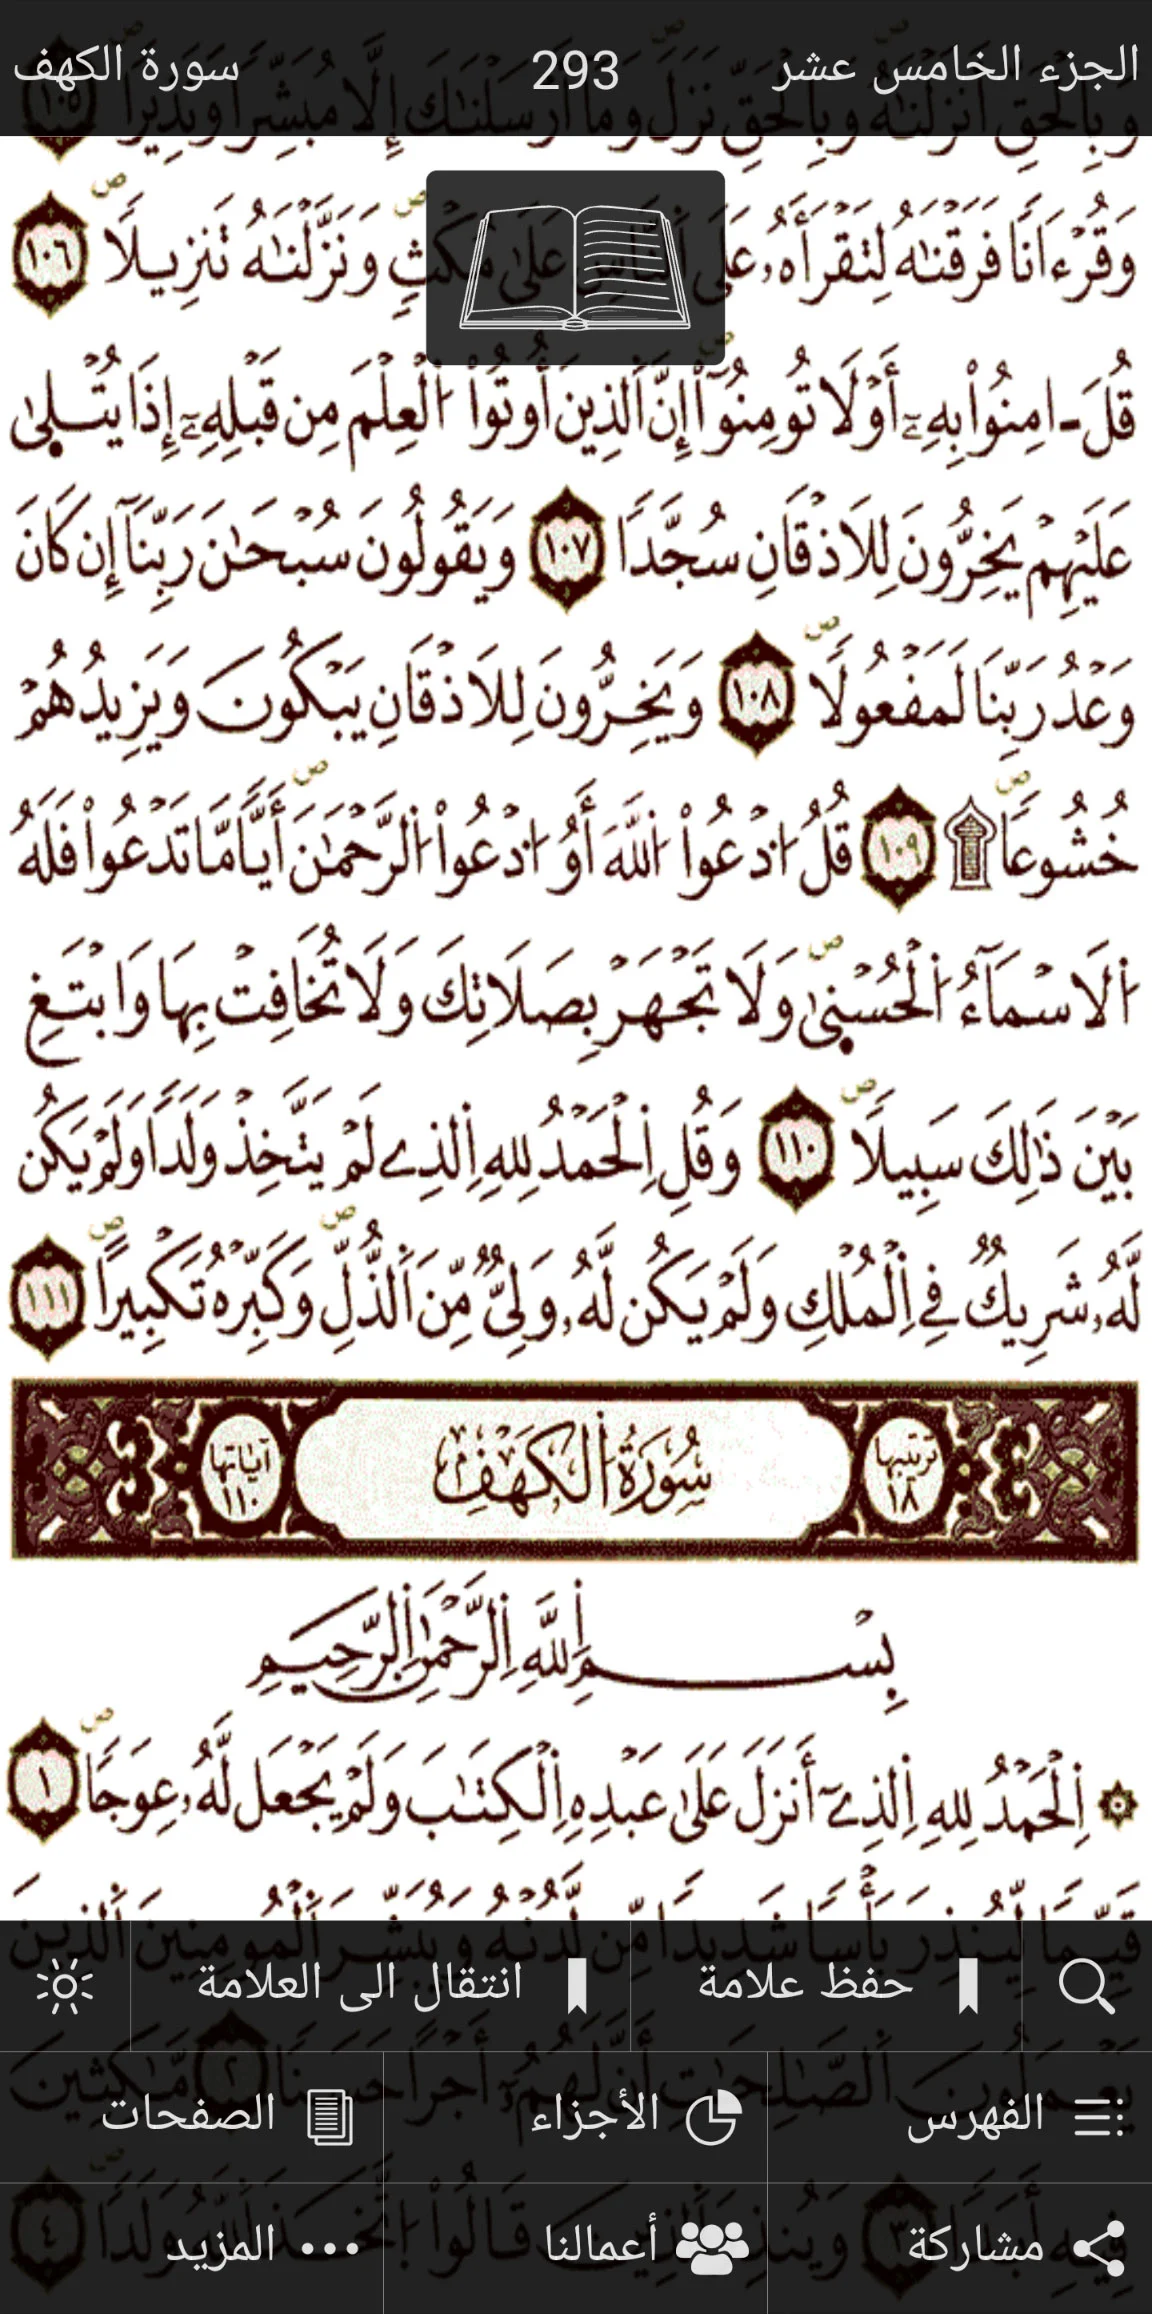 الجزء الخامس عشر 293 سورة الكهف
وَبِالْحَقِّ أَنزَلْنَٰهُ وَبِالْحَقِّ نَزَلَ وَمَا أَرْسَلْنَٰكَ إِلَّا مُبَشِّرًا وَنَذِيرًا ١٠٥
وَقُرْءَانًا فَرَقْنَٰهُ لِتَقْرَأَهُۥ عَلَى اَلنَّاسِ عَلَىٰ مُكْثٍ وَنَزَّلْنَٰهُ تَنزِيلًا ١٠٦
قُلَ ـ امِنُوا۟ بِهِۦٓ أَوْ لَا تُومِنُوٓا۟ إِنَّ اَلذِينَ أُوتُوا۟ اُلْعِلْمَ مِن قَبْلِهِۦٓ إِذَا يُتْلِىٰ
عَلَيْهِمْ يَخِرُّونَ لِلَاذْقَانِ سُجَّدًا ١٠٧ وَيَقُولُونَ سُبْحَٰنَ رَبِّنَآ إِن كَانَ
وَعْدُ رَبِّنَا لَمَفْعُولًا ١٠٨ وَيَخِرُّونَ لِلَاذْقَانِ يَبْكُونَ وَيَزِيدُهُمْ
خُشُوعًا ١٠٩ قُلُ ادْعُوا۟ اللَّهَ أَوُ ادْعُوا۟ اُلرَّحْمَٰنَ أَيًّا مَّا تَدْعُوا۟ فَلَهُ
اُلَاسْمَآءُ اُلْحُسْنِىٰ وَلَا تَجْهَرْ بِصَلَاتِكَ وَلَا تُخَافِتْ بِهَا وَابْتَغِ
بَيْنَ ذَٰلِكَ سَبِيلًا ١١٠ وَقُلِ اِلْحَمْدُ لِلهِ اِلذِے لَمْ يَتَّخِذْ وَلَدًا وَلَمْ يَكُن
لَّهُۥ شَرِيكٌ فِے اِلْمُلْكِ وَلَمْ يَكُن لَّهُۥ وَلِيٌّ مِّنَ اَلذُّلِّ وَكَبِّرْهُ تَكْبِيرًا ١١١
ترتيبها ١٨ سُورَةُ اُلْكَهْفِ آياتها ١١٠
بِسْمِ اِللَّهِ اِلرَّحْمَٰنِ اِلرَّحِيمِ
اِلْحَمْدُ لِلهِ اِلذِےٓ أَنزَلَ عَلَىٰ عَبْدِهِ اِلْكِتَٰبَ وَلَمْ يَجْعَل لَّهُۥ عِوَجًا ١
قَيِّمًا لِّيُنذِرَ بَأْسًا شَدِيدًا مِّن لَّدُنْهُ وَيُبَشِّرَ اَلْمُومِنِينَ اَلذِينَ
حفظ علامة انتقال الى العلامة
يَعْمَلُونَ اَلصَّٰلِحَٰتِ أَنَّ لَهُمُۥٓ أَجْرًا حَسَنًا ٢ مَّٰكِثِينَ
الفهرس الأجزاء الصفحات
فِيهِ أَبَدًا ٣ وَيُنذِرَ اَلذِينَ قَالُوا۟ اُتَّخَذَ اَللَّهُ وَلَدًا ٤
مشاركة أعمالنا المزيد